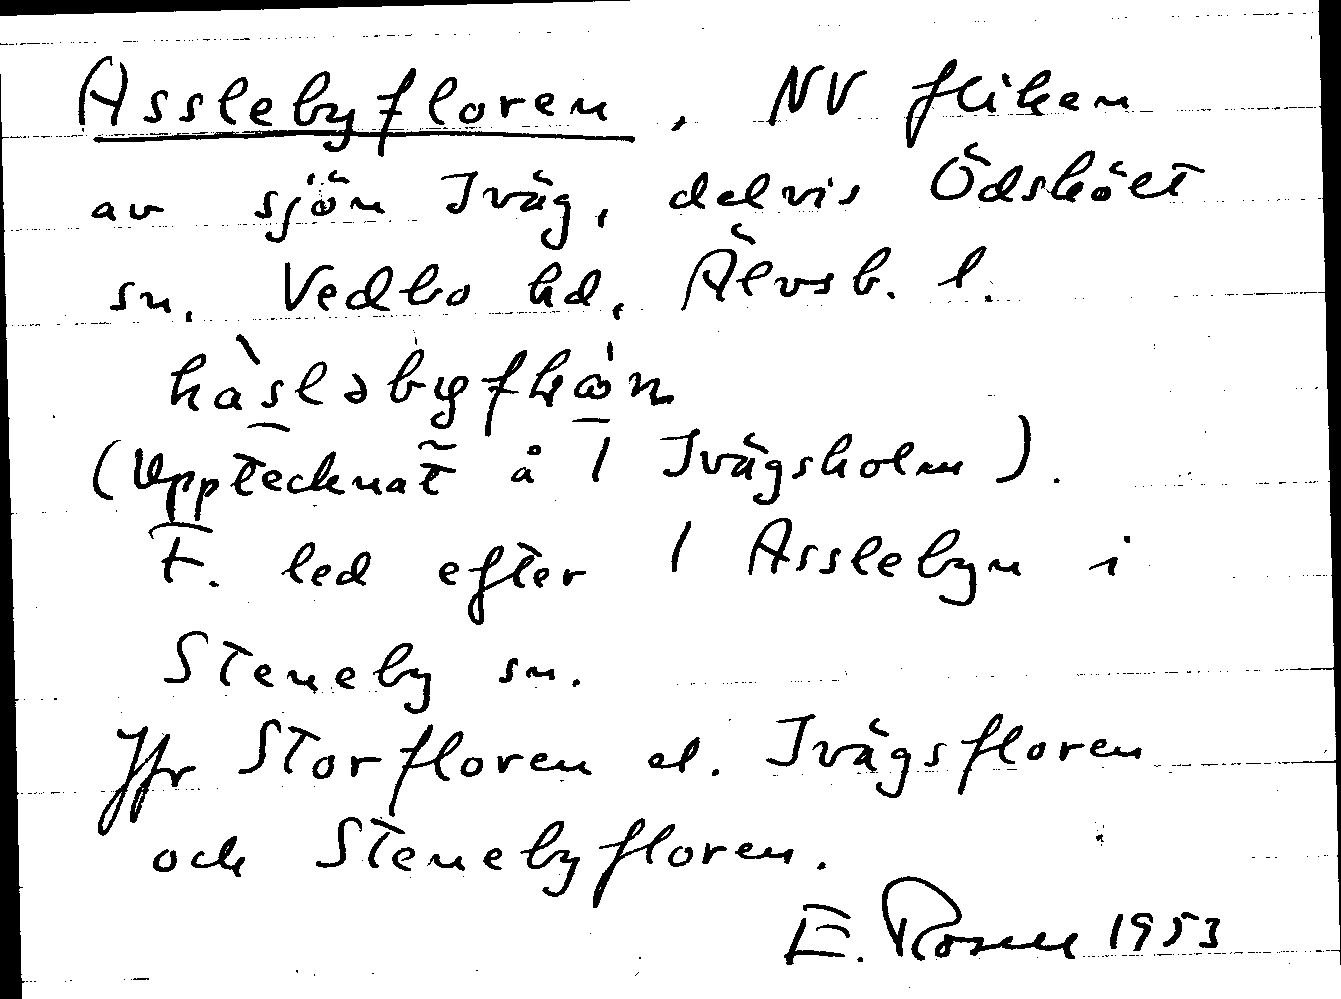 Asslebyfloren, NV fliken
av sjön Iväg, delvis Ödskölt
sn, Vedbo hd, Älvsb. l.
(Upptecknat å / Ivägsholm).
F. led efter / Asslebyn i
Steneby sn.
Jfr Storfloren el. Ivägsfloren
och Stenebyfloren.
E. Rosell 1953